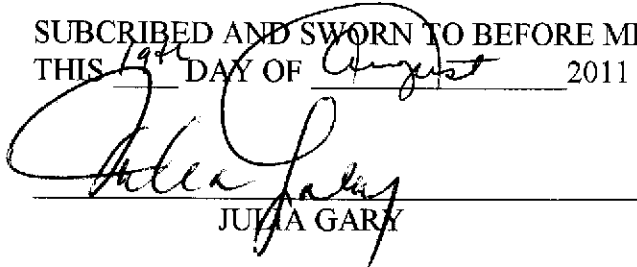 SUBCRIBED AND SWORN TO BEFORE ME
THIS 19th DAY OF August 2011
Julia Gary
JULIA GARY